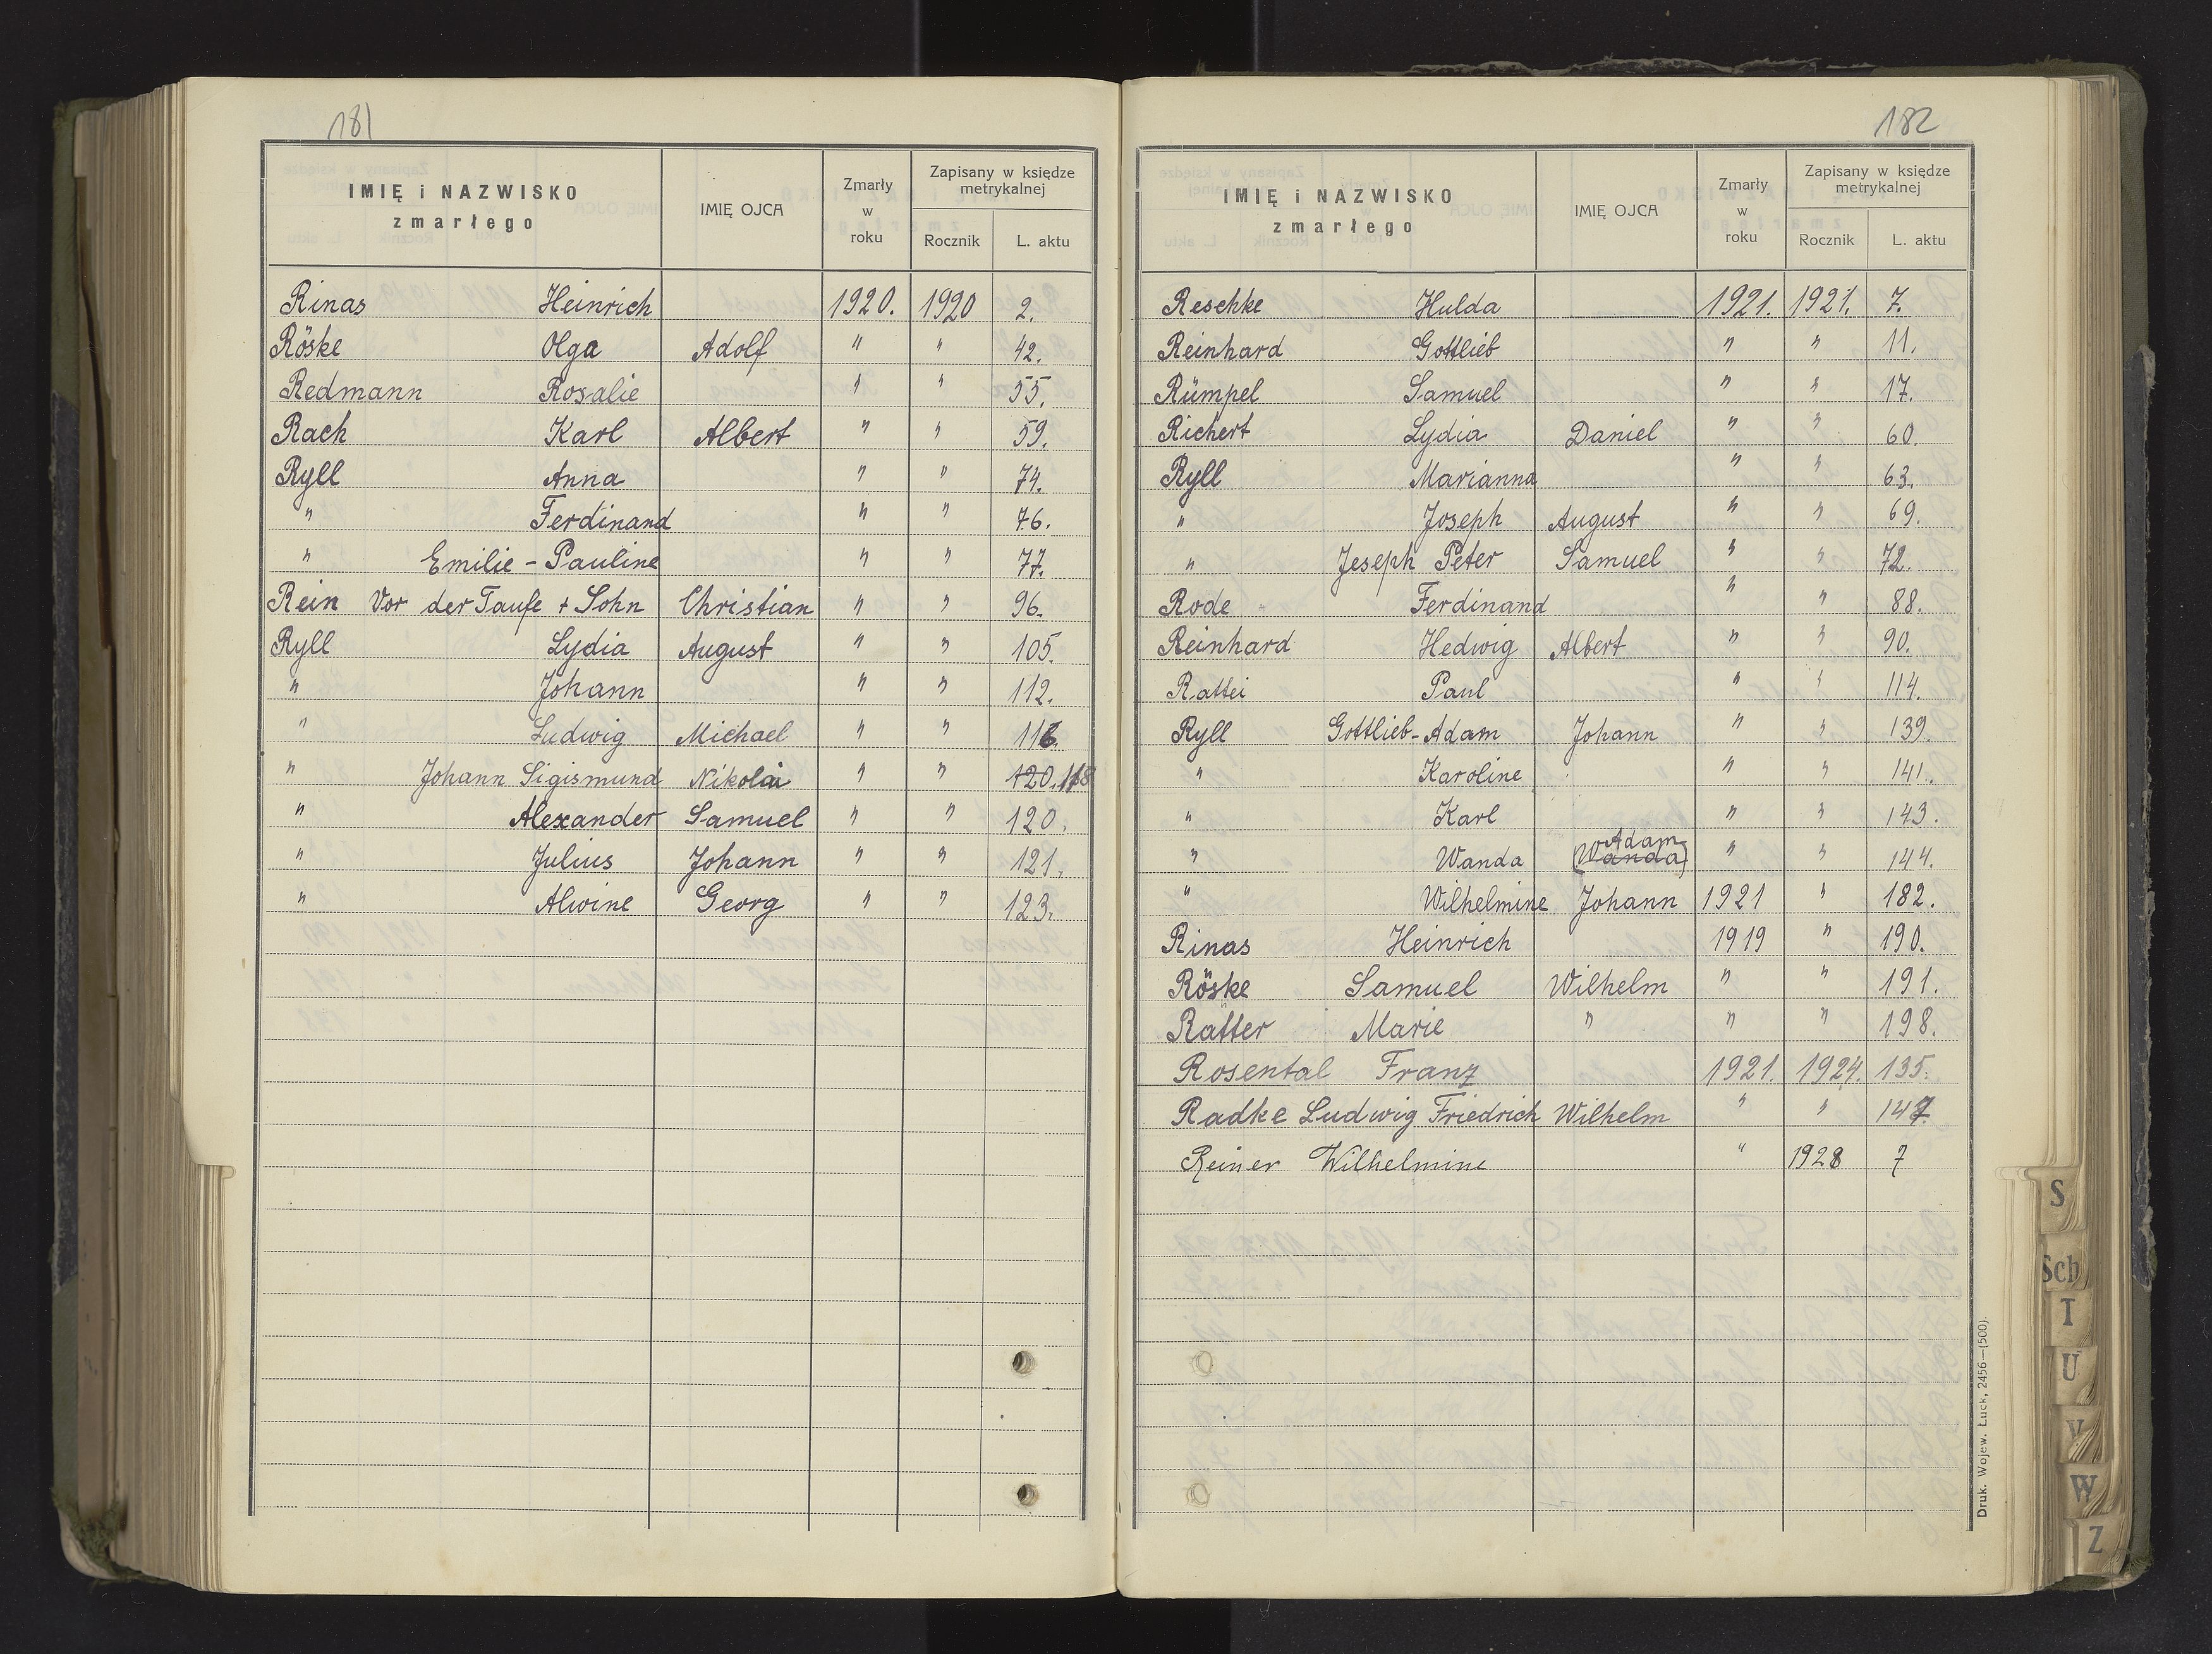 181
IMIĘ i NAZWISKO
zmarłego
IMIĘ OJCA
Zmarły
w
roku
Zapisany w księdze
metrykalnej
Rocznik
L. aktu
Rinas Heinrich 1920. 1920 2.
Röske Olga Adolf " " 42.
Redmann Rosalie " " 55.
Rach Karl Albert " " 59.
Ryll Anna " " 74.
" Ferdinand " " 76.
" Emilie - Pauline " " 77.
Rein Vor der Taufe + Sohn Christian " " 96.
Ryll Lydia August " " 105.
" Johann " " 112.
" Ludwig Michael " " 116.
" Johann Sigismund Nikolai " " 120. 118
" Alexander Samuel " " 120.
" Julius Johann " " 121.
" Alwine Georg " " 123.
182
IMIĘ i NAZWISKO
zmarłego
IMIĘ OJCA
Zmarły
w
roku
Zapisany w księdze
metrykalnej
Rocznik
L. aktu
Reschke Hulda 1921. 1921. 7.
Reinhard Gottlieb " " 11.
Rümpel Samuel " " 17.
Richert Lydia Daniel " " 60.
Ryll Marianna " " 63.
" Joseph August " " 69.
" Jeseph Peter Samuel " " 72.
Rode Ferdinand " " 88.
Reinhard Hedwig Albert " " 90.
Rattei Paul " " 114.
Ryll Gottlieb-Adam Johann " " 139.
" Karoline " " 141.
" Karl " " 143.
Adam
" Wanda (Wanda) " " 144.
" Wilhelmine Johann 1921 " 182.
Rinas Heinrich 1919 " 190.
Röske Samuel Wilhelm " " 191.
Ratter Marie " " " 198.
Rosental Franz 1921. 1924. 135.
Radke Ludwig Friedrich Wilhelm " " 147.
Reiner Wilhelmine " 1928 7
Druk. Wojew. Łuck, 2456—(500).
S
Sch
T
U
V
W
Z